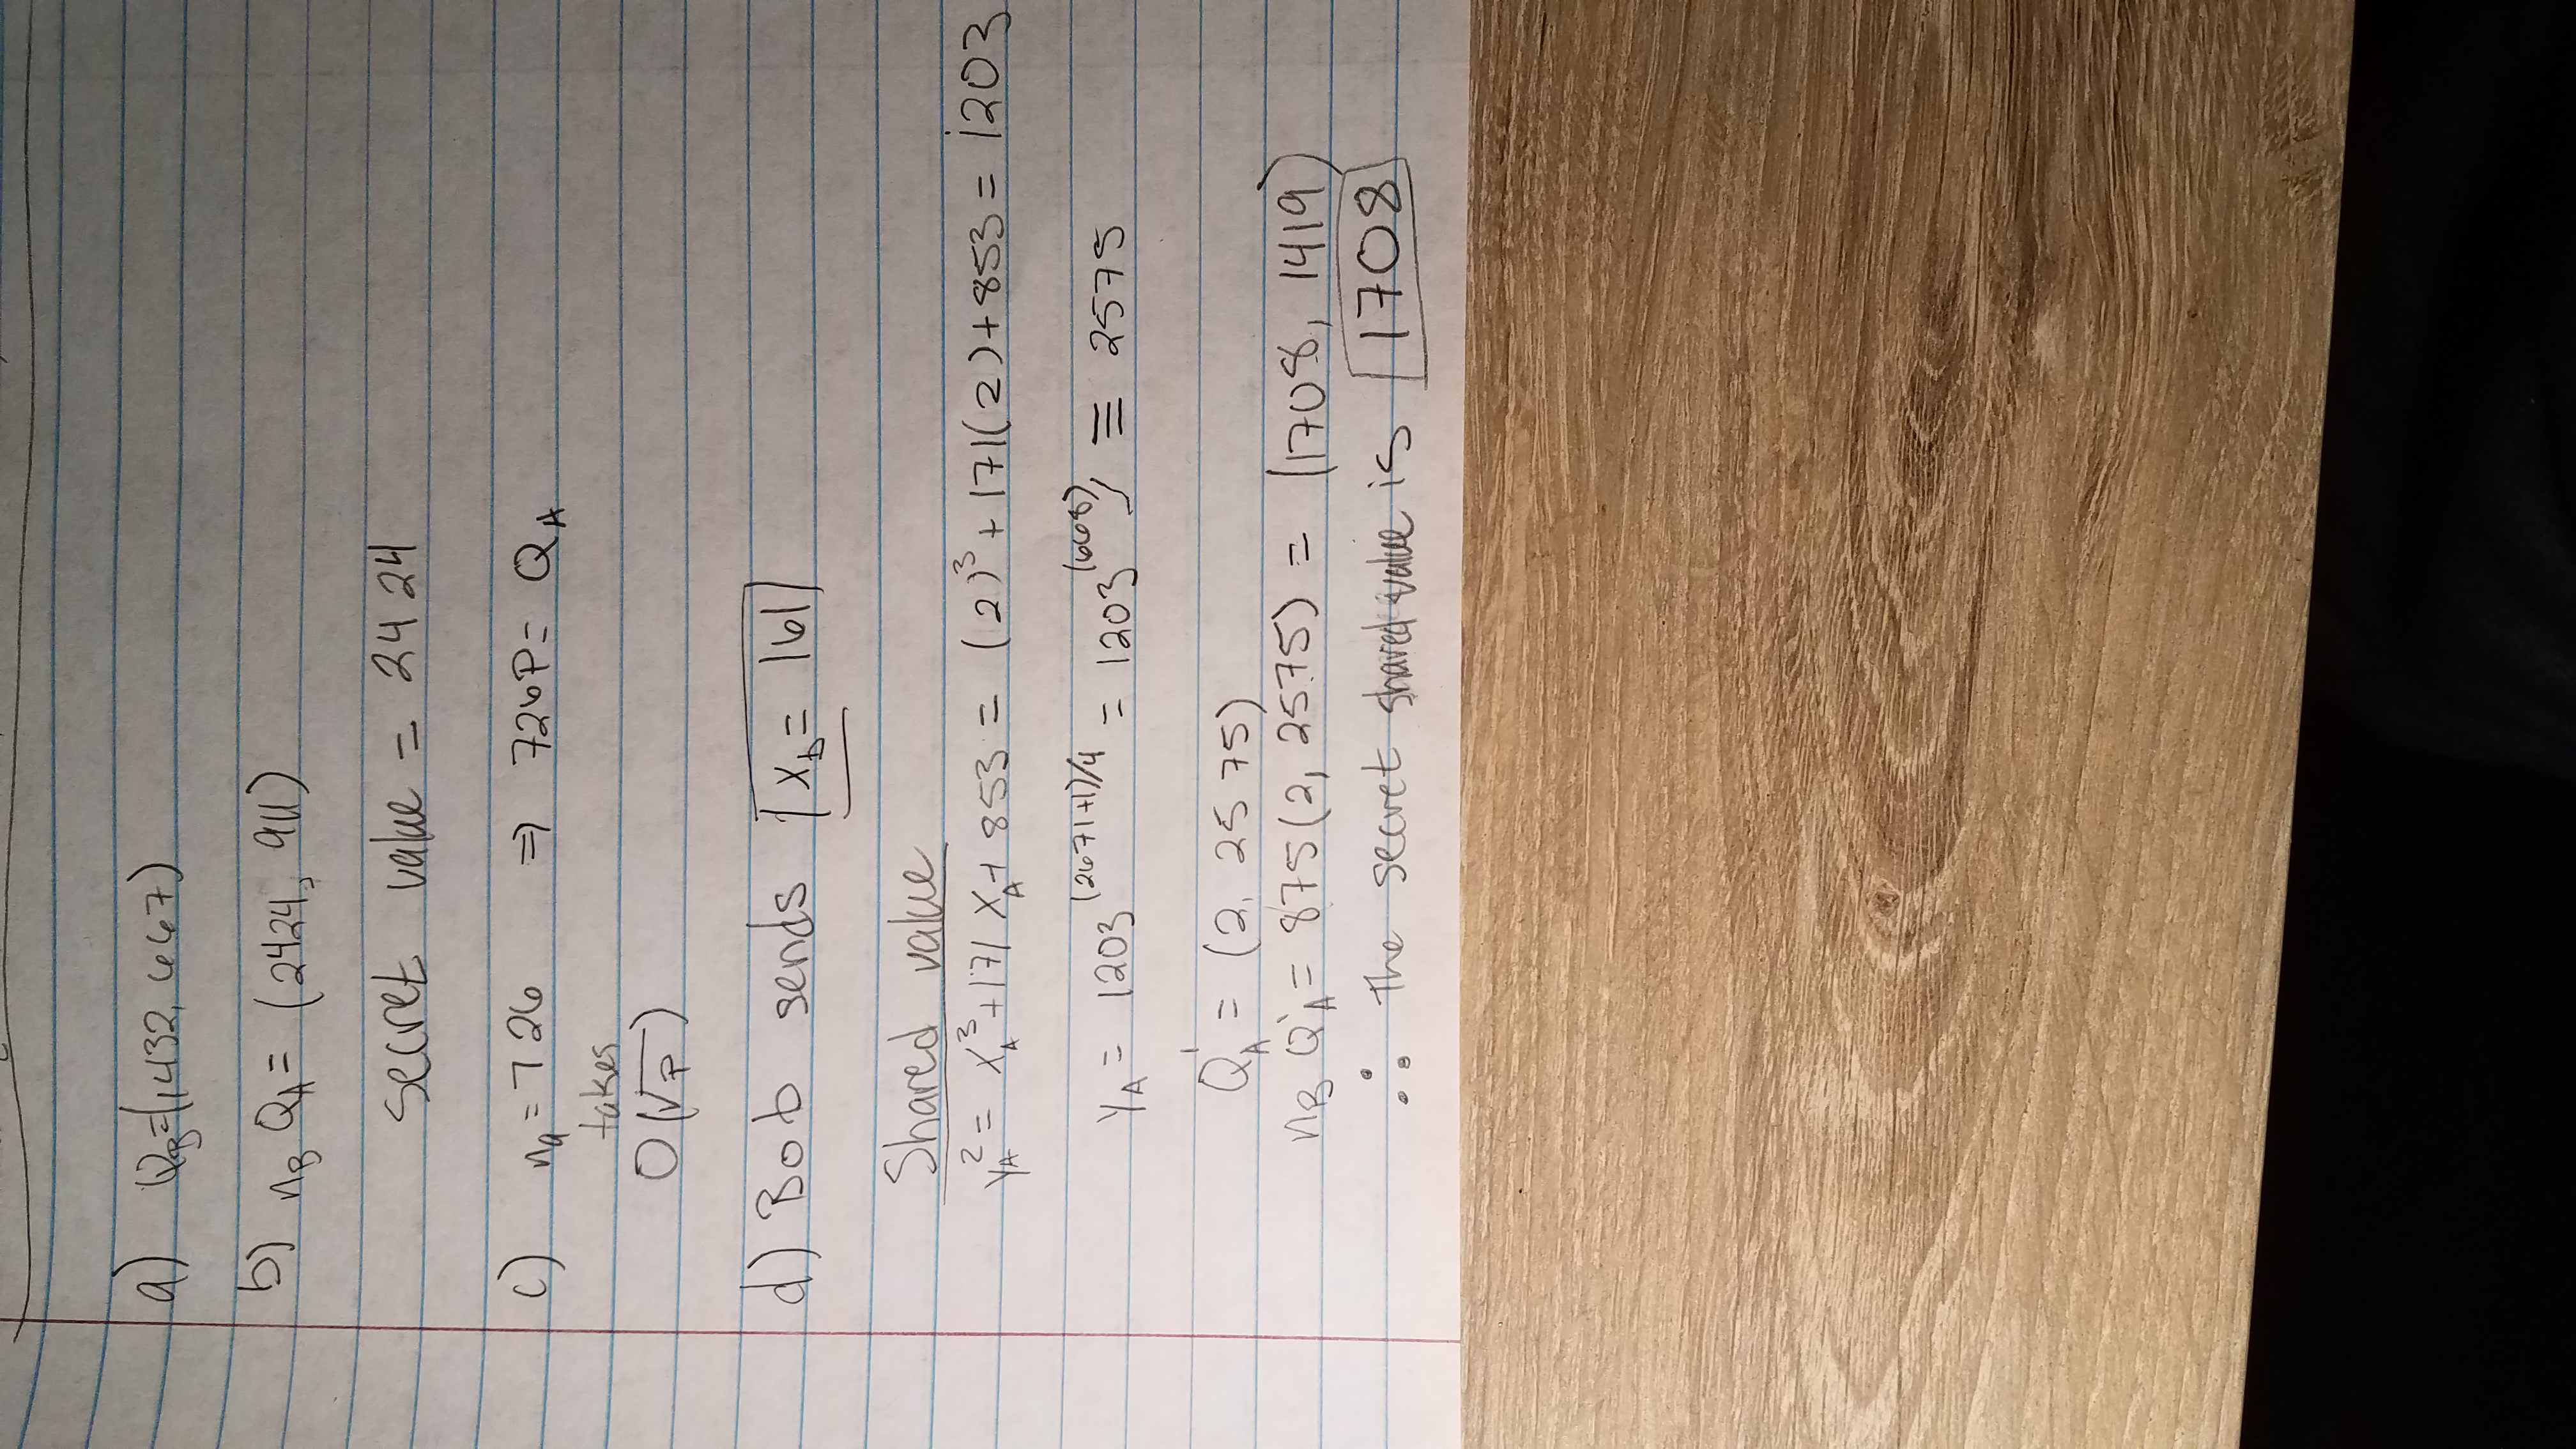 a) Q_B=(1432, 667)
b) n_B Q_A = (2424, 911)
secret value = 2424
c) n_a = 726 ⇒ 726P = Q_A
takes
O(√p)
d) Bob sends x_b = 161
Shared value
y_A² = x_A³ + 171 x_A + 853 = (2)³ + 171(2) + 853 = 1203
y_A = 1203^(2671+1)/4 = 1203^(668) ≡ 2575
Q'_A = (2, 2575)
n_B Q'_A = 875(2, 2575) = (1708, 1419)
∴ The secret shared value is 1708